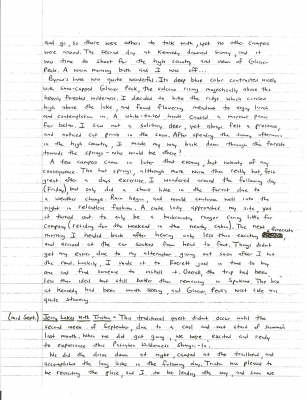 and go, so there were others to talk with, yet no other campers
were around. The second day at Kennedy dawned sunny, and it
was time to shoot for the high country and view of Glacier
Peak. A warm morning bath and I was off...
Byrne's lake was quite wonderful. Its deep blue color contrasted nicely
with snow-capped Glacier Peak, the volcano rising majestically above this
heavily forested wilderness. I decided to hike the ridge which circled
high above the lake, and found flowering meadows to enjoy lunch
and contemplation in. A white-tailed hawk chased a marmot
far below. I saw not a solitary deer, yet always felt a presence,
and noticed cat prints in the snow. After spending the sunny afternoon
in the high country, I made my way back down through the forests
towards the springs - who would be there?
A few campers came in later that evening, but nobody of any
consequence. The hot springs, although more warm than really hot, felt
great after a days excercise. I wandered around the following day
(Friday) but only did a short hike in the forest due to
a weather change. Rain began and would continue well into the
night in relentless fashion. A cute lady approached my site, yet
it turned out to only be a backcountry ranger caring little for
company (residing for the weekend in the nearby cabin). The next
morning I headed back after having only less than
and arrived at the car soaked from head to foot. Things didn't
get any easier, due to my alternator going out soon after I hit
the road. Luckily, I made it to Everett just in time to buy
one and find someone to install it. Overall, the trip had been
less than ideal but still better than remaining in Spokane. The hike
at Kennedy had been worth seeing, and Glacier Peak's west side was
quite stunning.
(mid Sept.) Jerry Lakes with Trisha - This traditional quest didn't occur until the
second week of September due to a cool and wet start of Summer
last month. When we did get going, we were excited and ready
to experience this Pasayten Wilderness Shangri-la.
We did the drive down at night, camped at the trailhead, and
accomplished the long hike in the following day. Trisha was pleased to
be revisiting the place, and I let her leading the way, and soon we